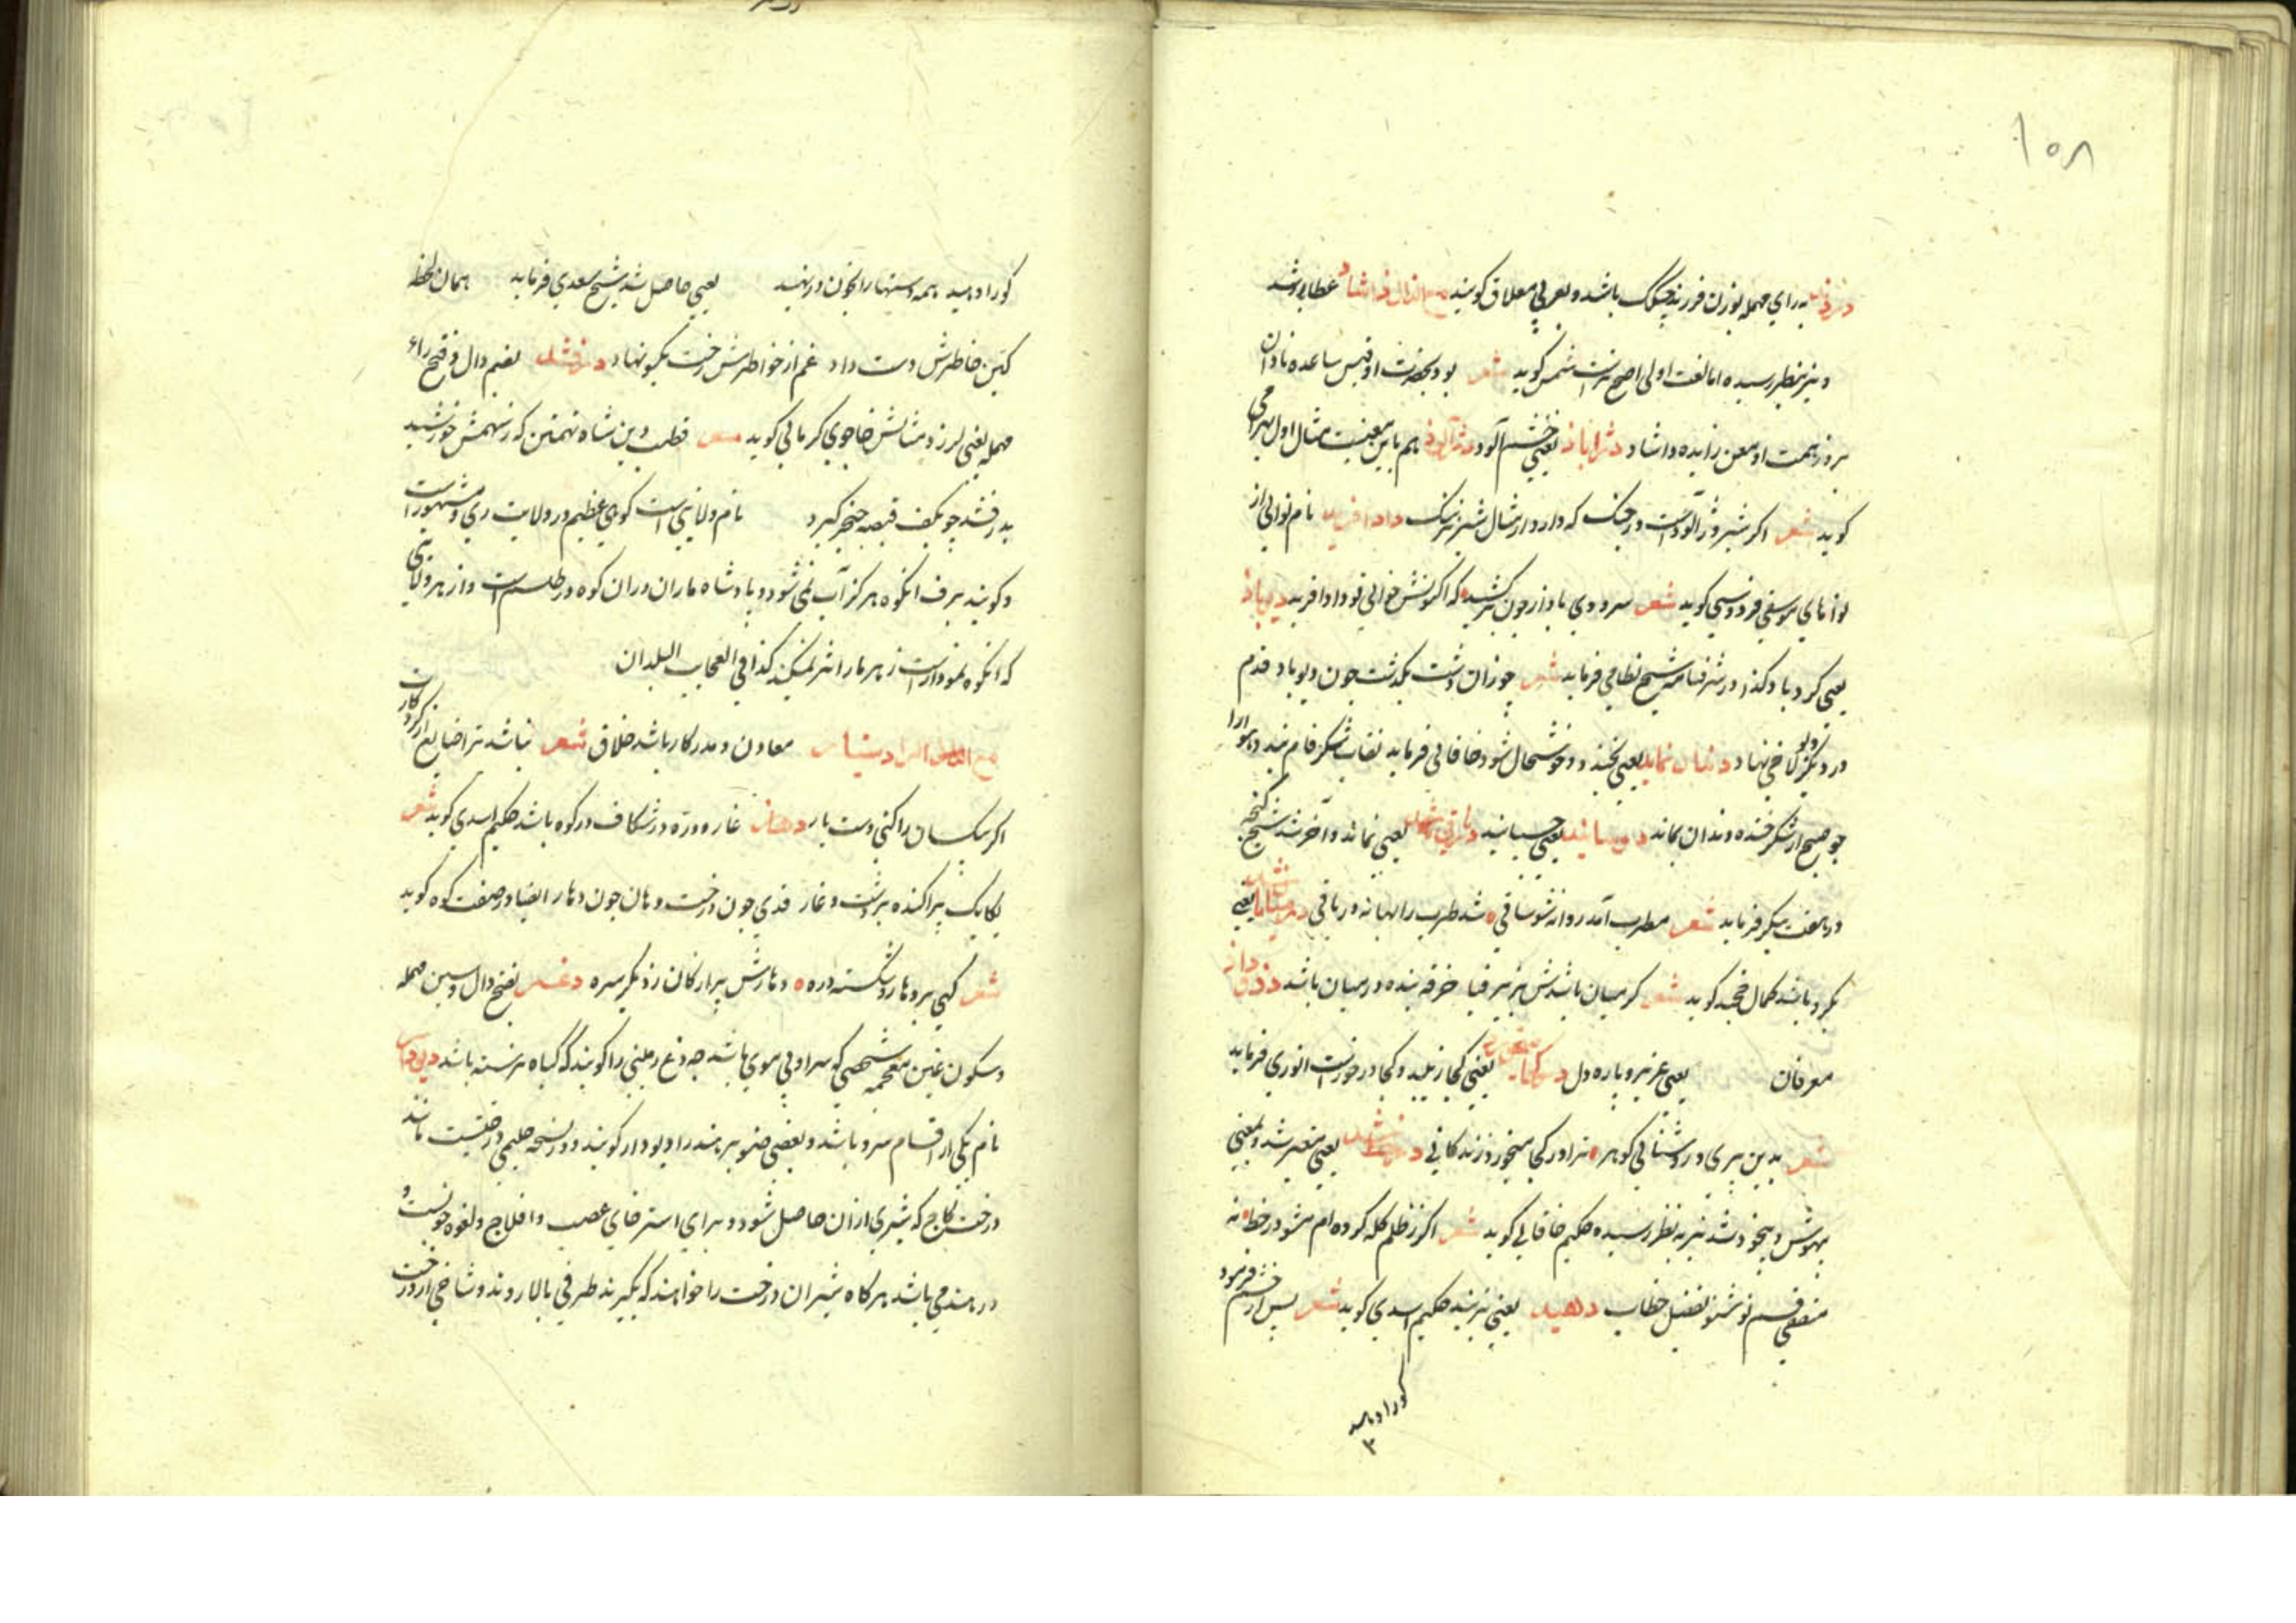 ۱۵۸
به رای مهمله بوزن فرزند چیک باشد و بعربی معلاق گویند مع الذال داشاد عطا بوشد
و نیز بنظر رسیده اما لغت اولی اصح ترست شمس گوید شعر بود بحضرت او قیس ساعده نادان
بروز همت او معن زایده داشاد دژاباد یعنی خشم آلود دژآلود هم باین معنیست مثال اول بهرامی
گوید شعر اگر شیر دژ آلودست در جنک که دارد ار مثال شیر نیرنک داد آفرید نام نوایی از
نواهای موسیقی فردوسی گوید شعر سرودی باواز چون برکشید که اکنونش خوانی تو داد آفرید دیوباد
یعنی گرد باد کذا در شرفنامه شیخ نظامی فرماید شعر چو زان دشت بگذشت چون دیو باد قدم
در دیگر لاخی نهاد دندان نماید یعنی بخندد و خوشحال شود خاقانی فرماید نقاب شکر فام بندد هوا را
چو صبح از شکر خنده دندان نماید دوسانید یعنی چسبانید در باقی شد یعنی نماند و آخر شد شیخ گنجه
در هفت پیکر فرماید شعر مطرب آمد روانه شد ساقی شد طرب را بهانه در باقی در میان باشد یعنی
بگرد باشد کمال خجند گوید شعر کر میان باشدش بزیر قبا خرقه بنده در میان باشد
معرفان یعنی عزیز و پاره دل در کجا یعنی کجا زیبد و کجا در خورست انوری فرماید
شعر بدین بری و روشنائی گوهر ترا در کجا میخورد زندگانی در خط شد یعنی متغیر شد و بمعنی
بیهوش و بیخود شد نیز به نظر رسیده حکیم خاقانی گوید شعر اگر ز ظلم گله کرده ام مشو در خط نه
منصفی قسم تو شنو بفضل خطاب دهید یعنی بزنید حکیم اسدی گوید شعر پس از خشم فرمود
کورا دهید
کورا دهید همه دستها را بخون در نهید یعنی حاصل شد شیخ سعدی فرماید همان لحظه
کین خاطرش دست داد غم از خاطرش رخت یکسو نهاد درفشد بضم دال و فتح راء
مهمله یعنی لرزد مثالش خواجوی کرمانی گوید شعر قطب دین شاه تهمتن که ز سهمش خورشید
بدرفشد چو بکف قبضه خنجر گیرد نام ولایتی است کوهی عظیم در ولایت ری و مشهورست
و گویند برف انکوه هرگز آب نمی شود و پادشاه ماران دران کوه در طلسم است و از هر ولایتی
که انکوه نمودارست زهر مار اثر نمیکند کذا فی العجایب البلدان
معاون و مددکار باشد خلاق شعر نباشد ترا ضایع از کردکارت
اگر بیکسان را کنی دست یار دهار غار و دره و شکاف در کوه باشد حکیم اسدی گوید شعر
یکایک پراکنده بر دشت و غار قدی چون درخت و دهان چون دهار ایضا در صفت کوه گوید
شعر کهی برو هار و شکسته دره دهارش پر از کان زر یکسره دغسر بفتح دال و سین مهمله
و سکون غین معجمه شخصی که سر او بی موی باشد چه دغ زمینی را گویند که گیاه نرسته باشد دیودار
نام یکی از اقسام سرو باشد و بعضی صنوبر هند را دیودار گویند و در نسخه حلیمی درختیست مانند
درخت کاج که شیری ازان حاصل شود و برای استرخای عصب و افلاج و لقوه خوبست و
در هند می باشد هرگاه شیر ان درخت را خواهند که بگیرند طرفی بالا روند و شاخی از درخت